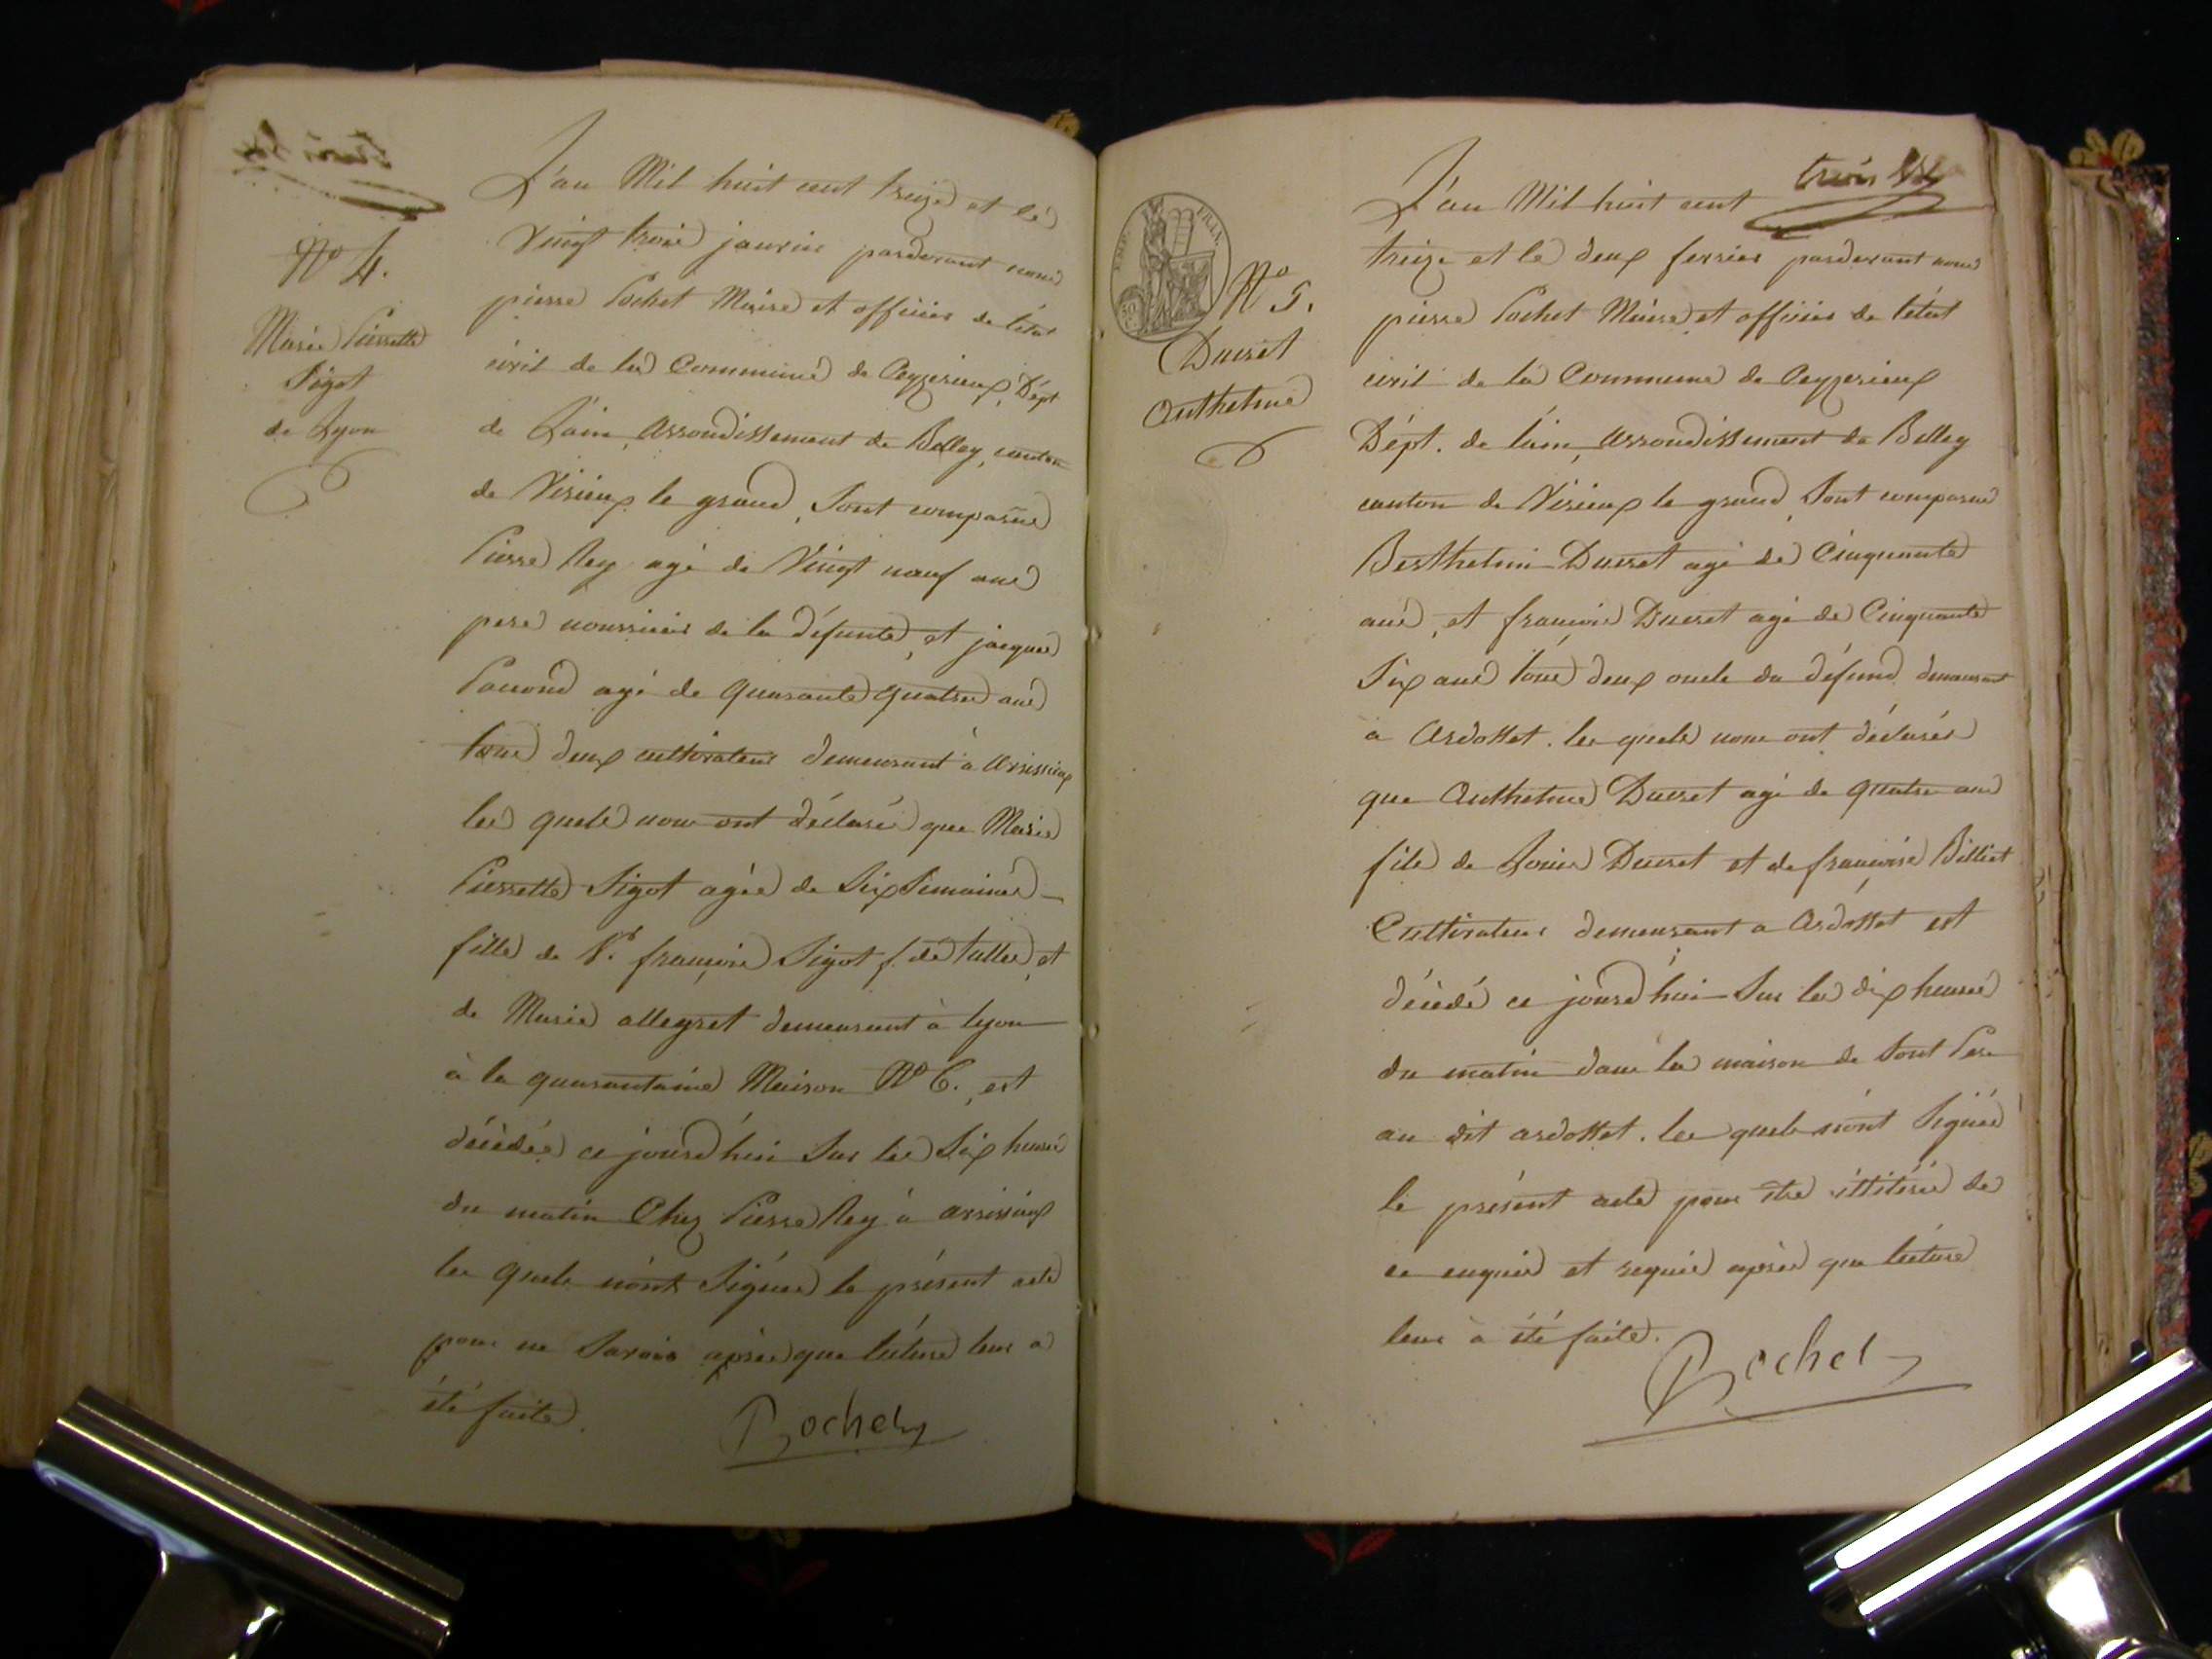 N.º 4.
Marie Pierrette
Sigot
de Lyon
L'an Mil huit cent treize et le
Vingt trois janvier pardevant nous
pierre Pochet Maire et officier de l'état
civil de la Commune de Ceyzerieux, Dépt
de L'ain, arrondissement de Belley, canton
de Virieux le grand, Sont comparus
Pierre Rey agé de Vingt neuf ans
pere nourricier de la défunte, et jacques
agé de quarante quatre ans
tous deux cultivateurs demeurant à arrissieux
les quels nous ont déclaré que Marie
Pierrette Sigot agée de Six Semaines
fille de Sr. françois Sigot f. de tulles, et
de Marie allegret demeurant à lyon
à la quarantaine Maison N.º 6., est
décédée ce jourd'hui Sur les Six heures
du matin Chez Pierre Rey à arrissieux
les quels n'ont Signés le présent acte
pour ne Savoir après que lecture leur a
été faite.
Pochet
trois
EMP. FRAN.
N.º 5.
Ducret
Anthelme
L'an Mil huit cent
treize et le deux fevrier pardevant nous
pierre Pochet Maire et officier de l'état
civil de la Commune de Ceyzerieux
Dépt. de l'ain, arrondissement de Belley
canton de Virieux le grand, Sont comparus
Berthelmi Ducret agé de Cinquante
ans, et françois Ducret agé de Cinquante
Six ans tous deux oncle du défund demeurant
à Ardosset. les quels nous ont déclarés
que Anthelme Ducret agé de quatre ans
fils de Louis Ducret et de françoise Billiet
Cultivateur demeurant a Ardosset est
décédé ce jourd'hui Sur les dix heures
du matin dans la maison de Sont Pere
au dit ardosset. les quels n'ont Signés
le présent acte pour être illiterés de
ce enquis et requis après que lecture
leur à été faite.
Pochet